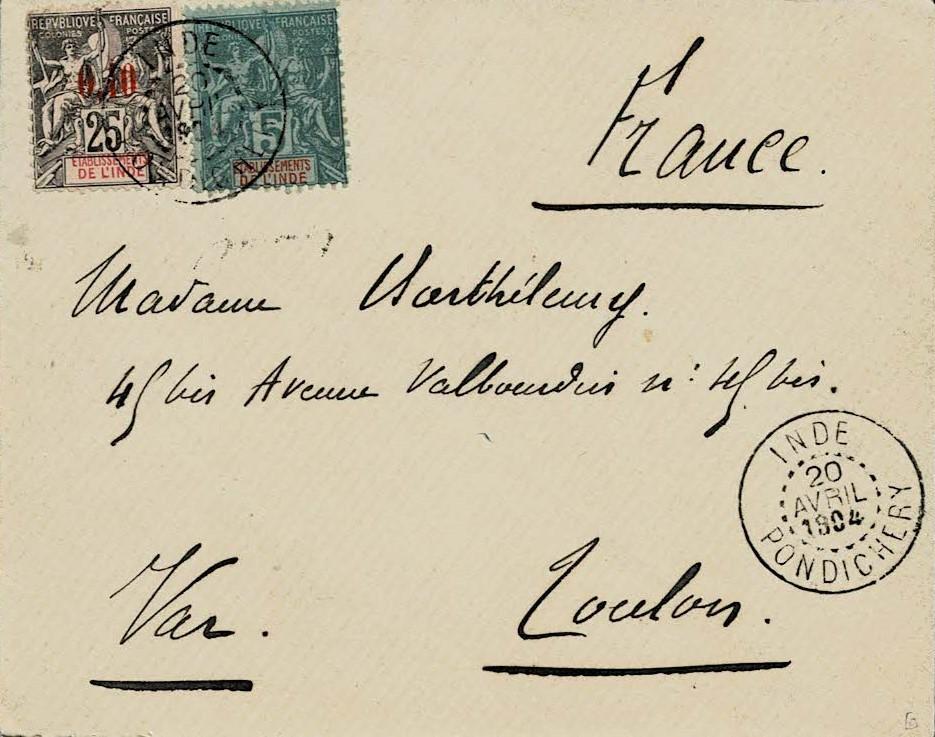 REPVBLIQVE FRANÇAISE
COLONIES POSTES
0,10
25
ETABLISSEMENTS
DE L'INDE
REPVBLIQVE FRANÇAISE
COLONIES POSTES
5
ETABLISSEMENTS
DE L'INDE
INDE
20
AVRIL
France.
Madame Barthélemy.
45 bis Avenue Valbourdin n: 45 bis.
INDE
20
AVRIL
1904
PONDICHERY
Var.
Toulon.